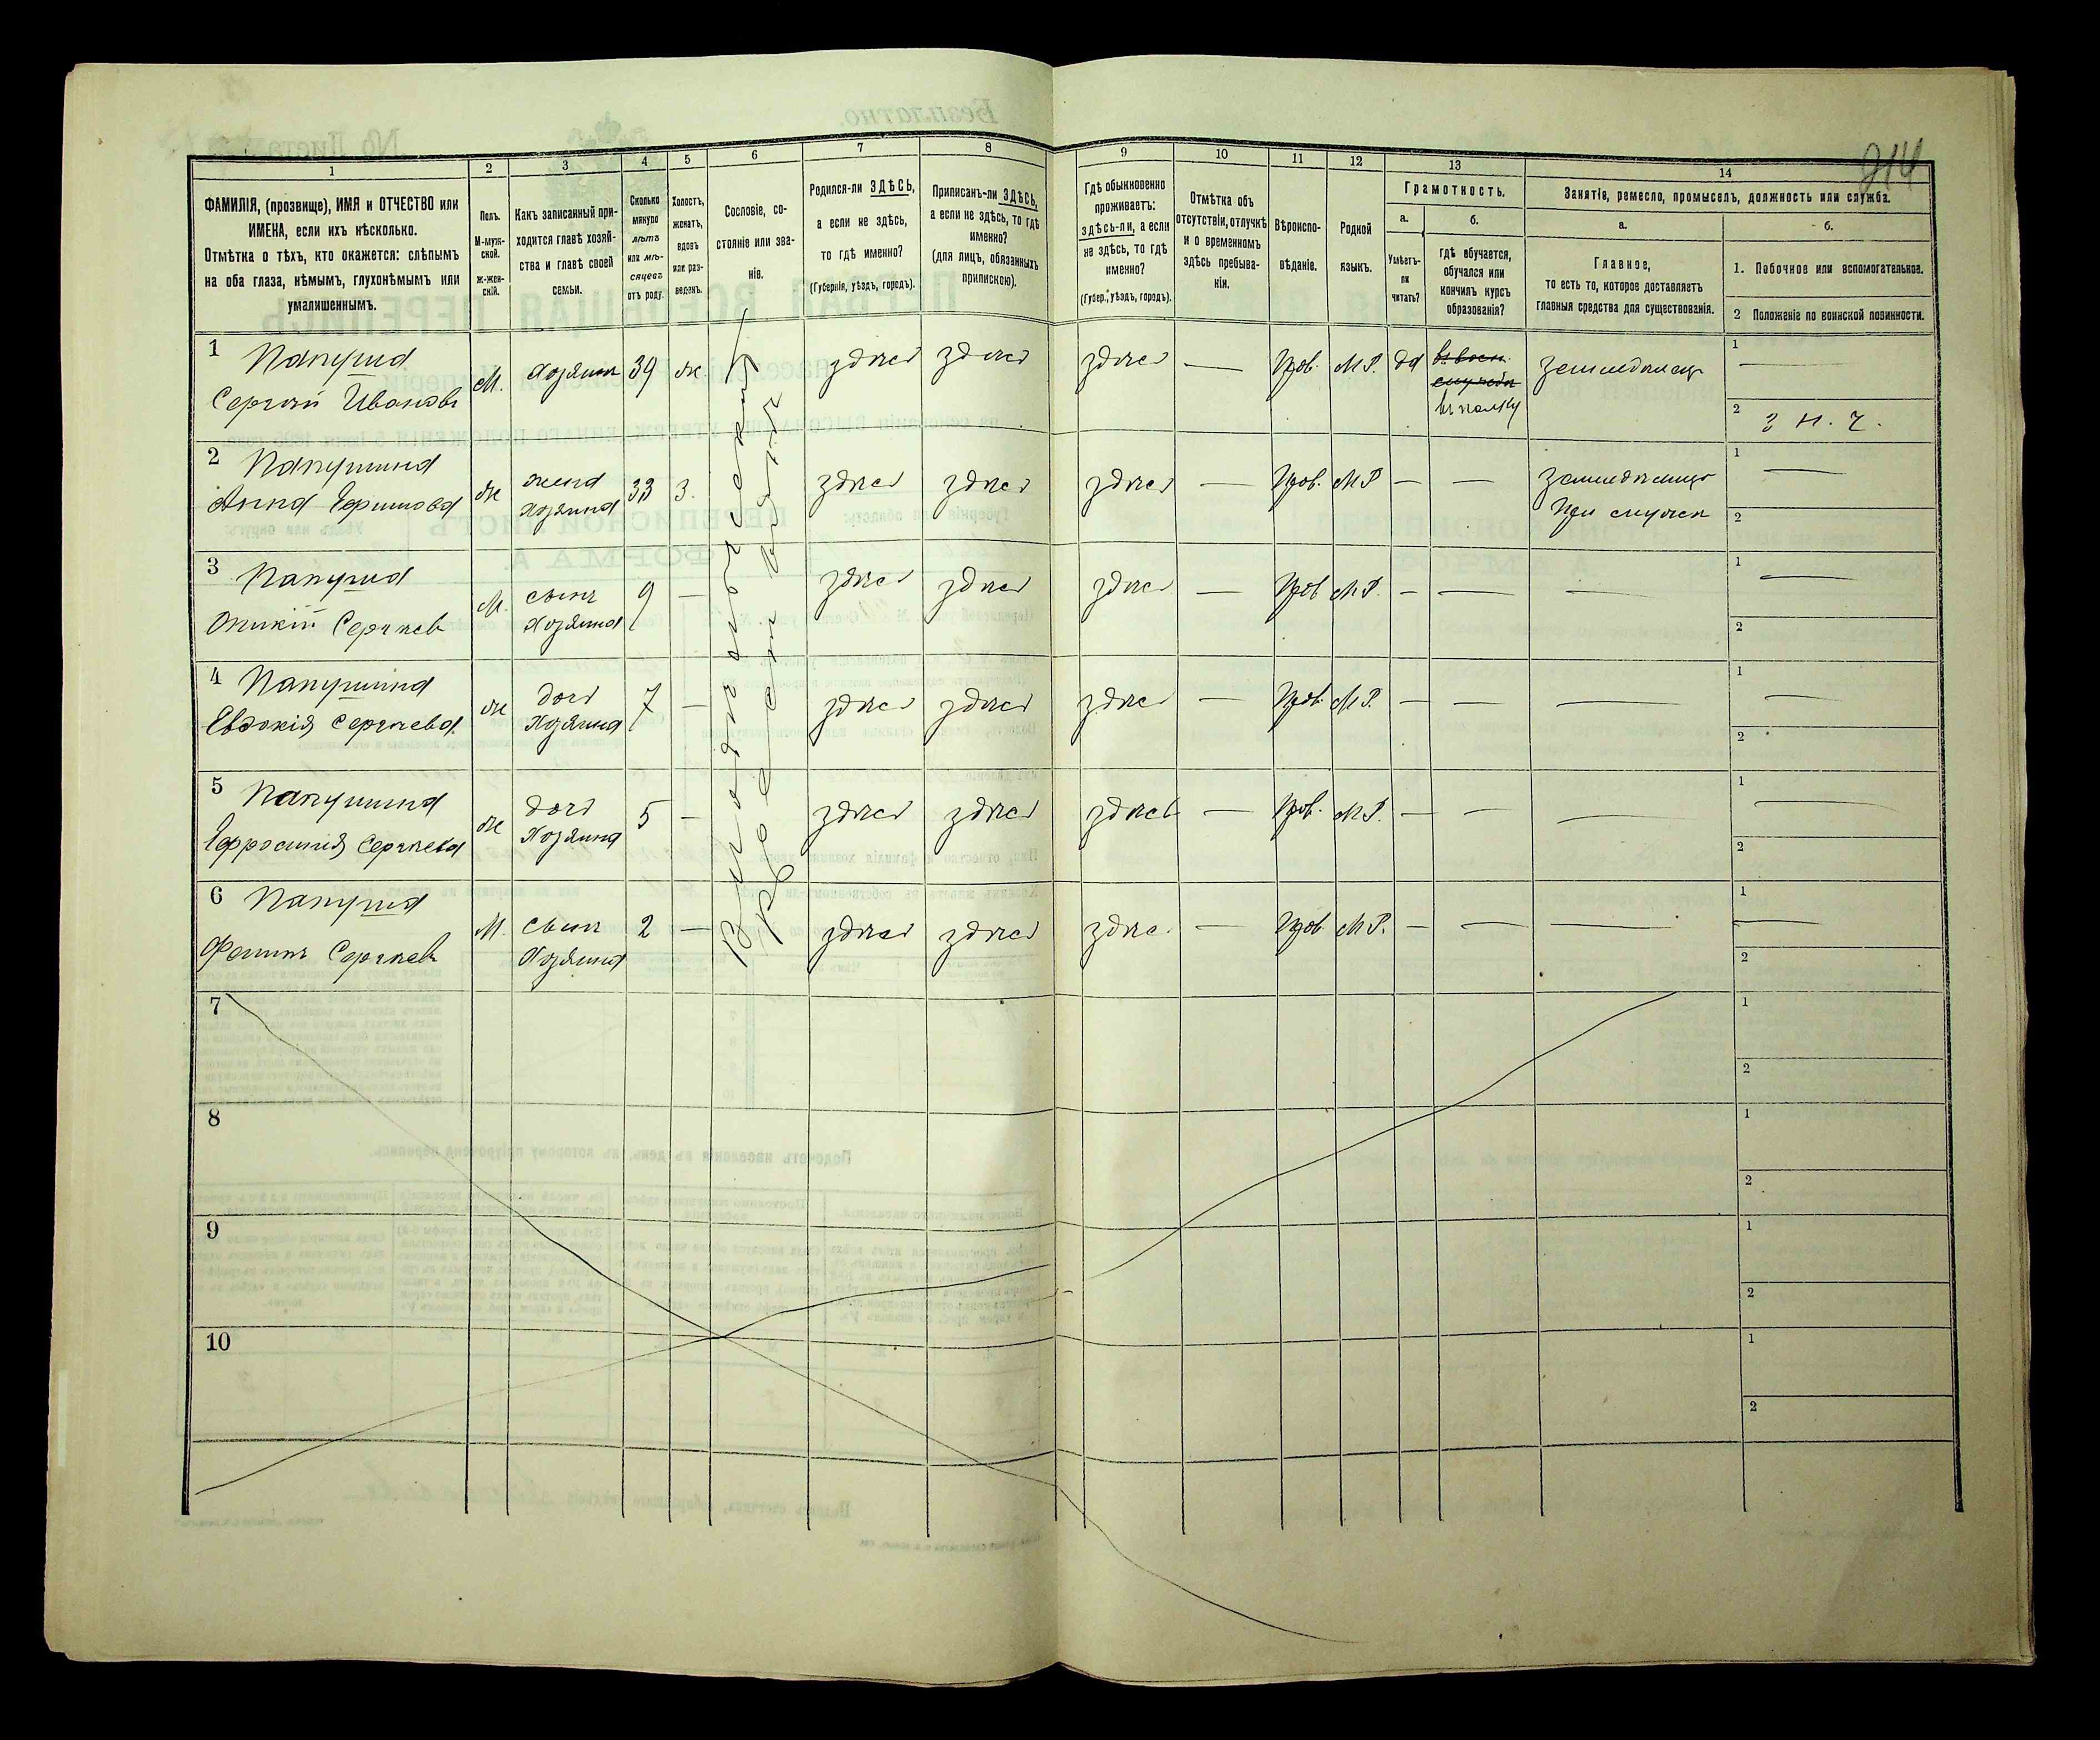 214
1 2 3 4 5 6 7 8 9 10 11 12 13 14
ФАМИЛІЯ, (прозвище), ИМЯ и ОТЧЕСТВО или
ИМЕНА, если ихъ нѣсколько.
Отмѣтка о тѣхъ, кто окажется: слѣпымъ
на оба глаза, нѣмымъ, глухонѣмымъ или
умалишеннымъ.
Полъ.
М-муж-
ской.
Ж-жен-
скій.
Какъ записанный при-
ходится главѣ хозяй-
ства и главѣ своей
семьи.
Сколько
минуло
лѣтъ
или мѣ-
сяцевъ
отъ роду.
Холостъ,
женатъ,
вдовъ
или раз-
веденъ.
Сословіе, со-
стояніе или зва-
ніе.
Родился-ли ЗДѢСЬ,
а если не здѣсь,
то гдѣ именно?
(Губернія, уѣздъ, городъ).
Приписанъ-ли ЗДѢСЬ,
а если не здѣсь, то гдѣ
именно?
(для лицъ, обязанныхъ
припискою).
Гдѣ обыкновенно
проживаетъ:
здѣсь-ли, а если
не здѣсь, то гдѣ
именно?
(Губер., уѣздъ, городъ).
Отмѣтка объ
отсутствіи, отлучкѣ
и о временномъ
здѣсь пребыва-
ніи.
Вѣроиспо-
вѣданіе.
Родной
языкъ.
Грамотность.
а.
Умѣетъ-
ли
читать?
б.
гдѣ обучается,
обучался или
кончилъ курсъ
образованія?
Занятія, ремесло, промыселъ, должность или служба.
а.
Главное,
то есть то, которое доставляетъ
главныя средства для существованія.
б.
1. Побочное или вспомогательное.
2 Положеніе по воинской повинности.
1 Папуша М. Хозяинъ 39 ж. здѣсь здѣсь здѣсь — Прав. М.Р. да земледѣлецъ 1 —
Сергѣй Ивановъ въ полку 2
2 Папушина ж жена 33 з. здѣсь здѣсь здѣсь — Прав. М.Р. — — 1 —
Анна Ефимова хозяина При мужѣ 2
3 Папуша М. сынъ 9 — здѣсь здѣсь здѣсь — Прав. М.Р. — — — 1 —
Сергѣевъ Хозяина 2
4 Папушина ж дочь 7 — здѣсь здѣсь здѣсь — Прав. М.Р. — — — 1 —
Евдокія Сергѣева Хозяина 2
5 Папушина ж дочь 5 — здѣсь здѣсь здѣсь — Прав. М.Р. — — — 1 —
Ефросинія Сергѣева Хозяина 2
6 Папуша М. сынъ 2 — здѣсь здѣсь здѣсь — Прав. М.Р. — — — 1 —
Сергѣевъ Хозяина 2
7 1
2
8 1
2
9 1
2
10 1
2